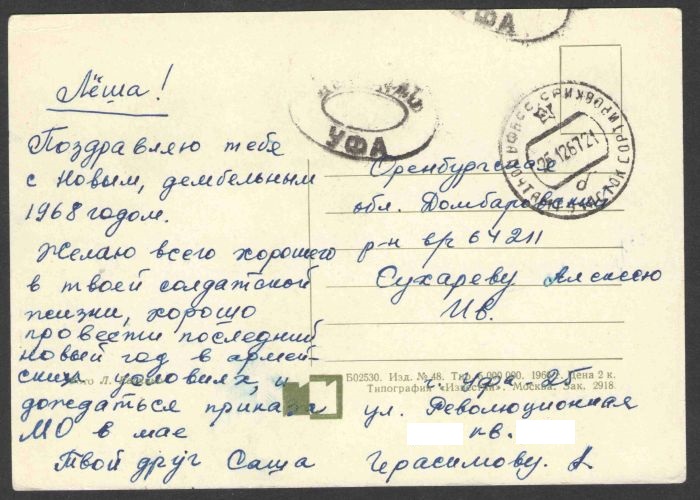 Лёша!
Поздравляю тебя
с новым, дембельным
1968 годом.
Желаю всего хорошего
в твоей солдатской
жизни, хорошо
провести последний
новый год в армей-
ских условиях, и
дождаться приказа
МО в мае
Твой друг Саша
УФА
УФА
25 12 67 21
Оренбургская
обл. Домбаровский
р-н в/ч 64211
Сухареву Алексею
Ив.
Б02530. Изд. № 48. 5 000 000. Цена 2 к.
Типография «Известий». Москва. Зак. 2918.
Фото Л.
г. Уфа-25
ул. Революционная
кв.
Герасимову. А